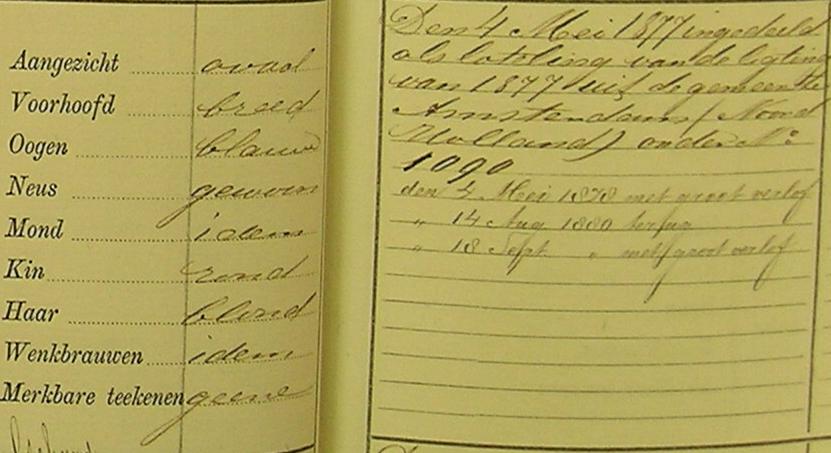 Aangezicht ovaal
Voorhoofd breed
Oogen blauw
Neus gewoon
Mond idem
Kin rond
Haar blond
Wenkbrauwen idem
Merkbare teekenen geene
Den 4 Mei 1877 ingedeeld
als loteling van de ligting
van 1877 uit de gemeente
Amsterdam (Noord
Holland) onder No:
1090
den 4 Mei 1878 met groot verlof
„ 14 Aug 1880 terug
„ 18 Sept. „ met groot verlof